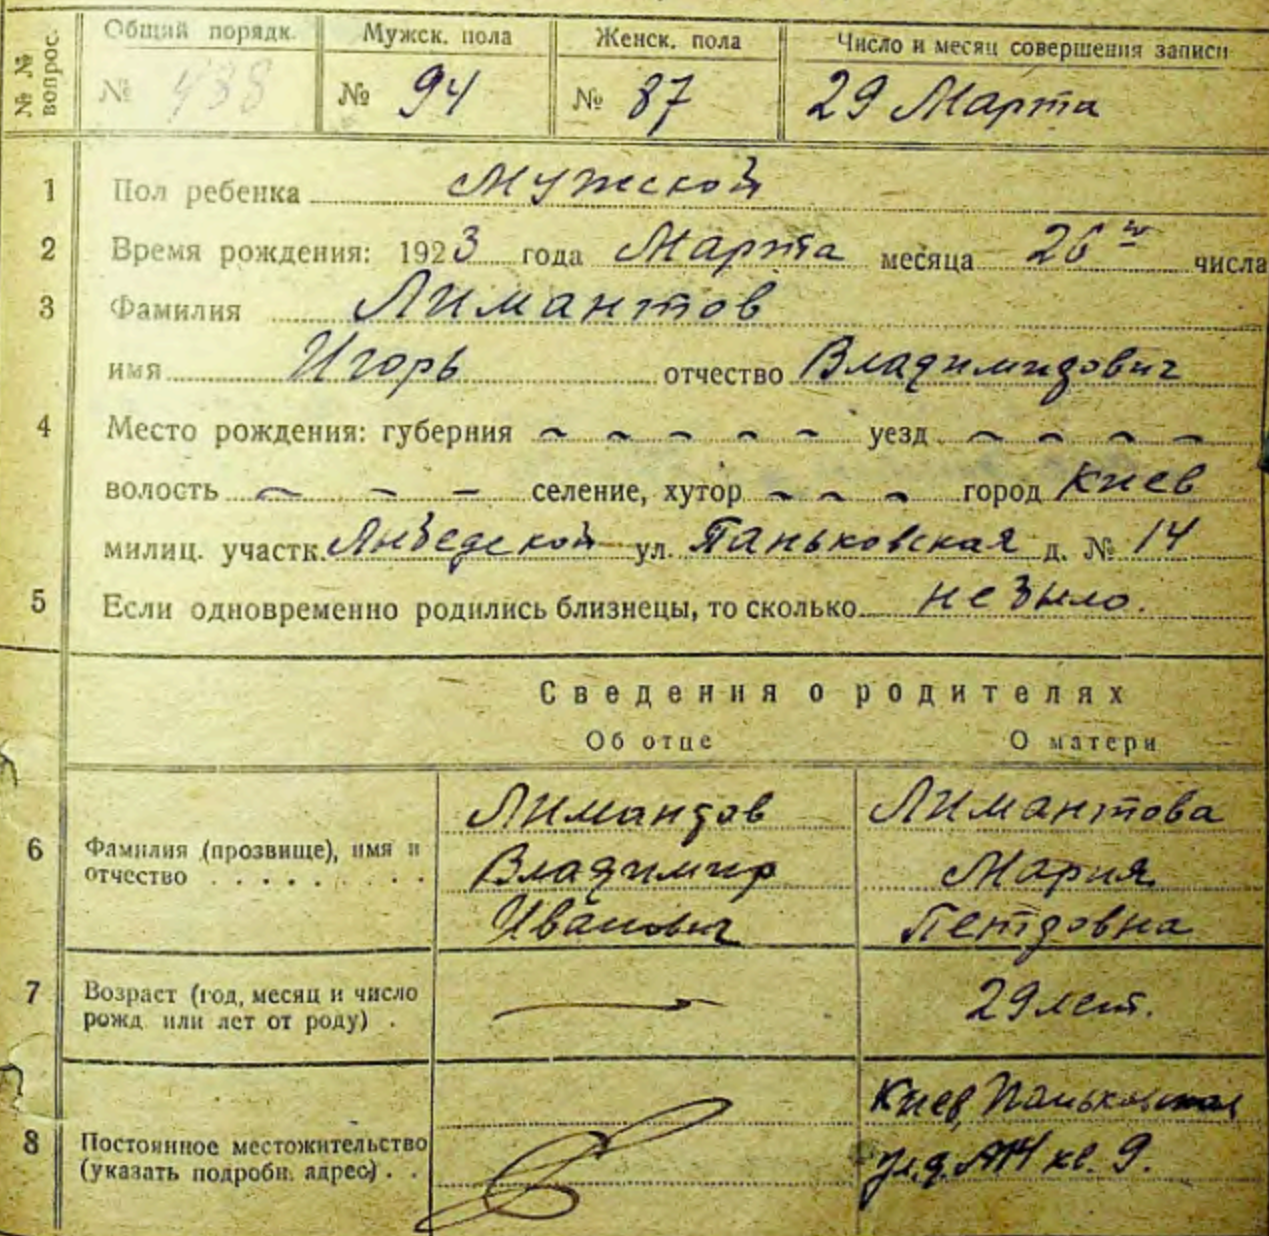 № № вопрос.
Общий порядк. Мужск. пола Женск. пола Число и месяц совершения записи
№ 438 № 94 № 87 29 Марта
1 Пол ребенка Мужской
2 Время рождения: 1923 года Марта месяца 26 го числа
3 Фамилия Лимантов
имя Игорь отчество Владимирович
4 Место рождения: губерния ~ ~ ~ ~ ~ уезд ~ ~ ~ ~
волость ~ – – селение, хутор ~ ~ ~ город Киев
милиц. участк. ул. Паньковская д. № 14
5 Если одновременно родились близнецы, то сколько не было.
Сведения о родителях
Об отце О матери
6 Фамилия (прозвище), имя и отчество . . . . . . . .
Лимантов Лимантова
Владимир Мария
Иванович Петровна
7 Возраст (год, месяц и число рожд. или лет от роду) . — 29 лет.
8 Постоянное местожительство (указать подробн. адрес) . .
Киев, Паньковская
ул. д. №14 кв. 9.